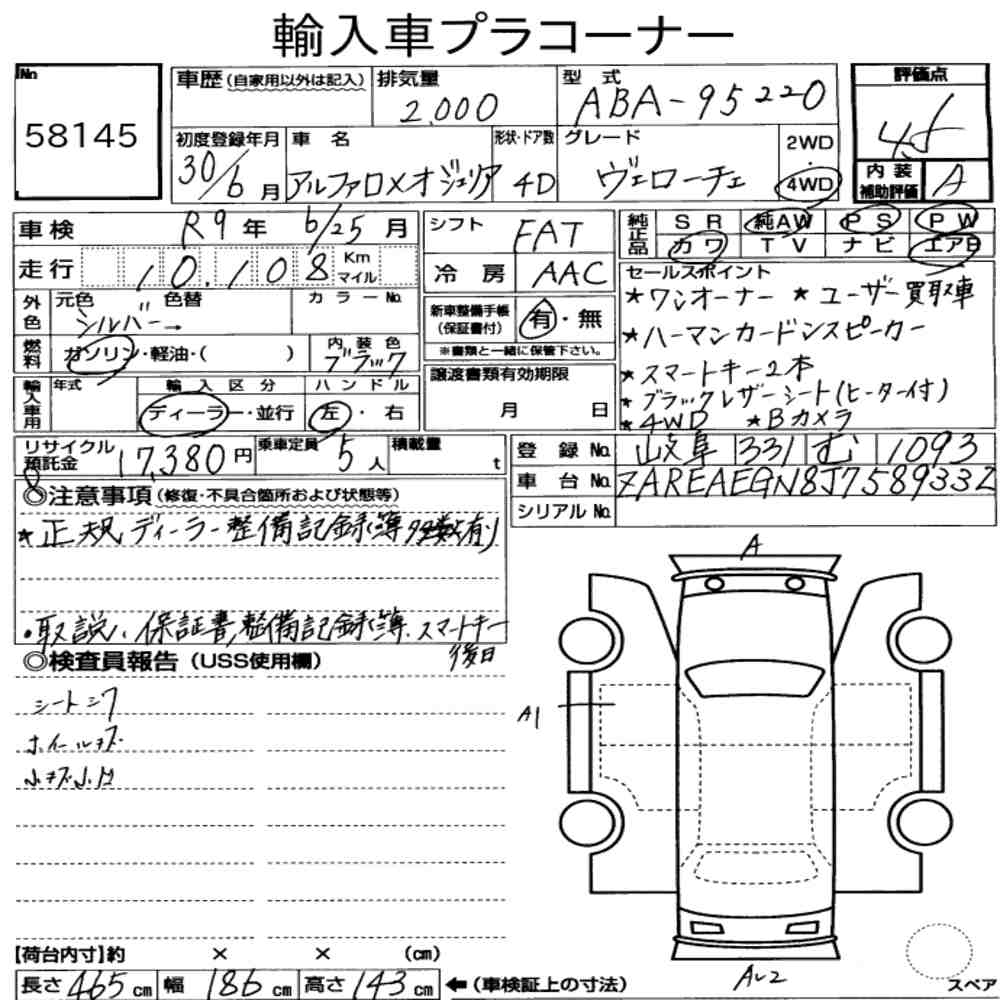 輸入車プラコーナー
No 58145
車歴(自家用以外は記入) 排気量 2,000 型式 ABA-95220 評価点 4.5
初度登録年月 30/6月 車名 アルファロメオジュリア 形状・ドア数 4D グレード ヴェローチェ 2WD 4WD 内装補助評価 A
車検 R9年 6/25月 シフト FAT 純正品 SR 純AW PS PW
走行 10,108 Km マイル 冷房 AAC カワ TV ナビ エアB
外色 元色 シルバー 色替 〃 カラーNo.
新車整備手帳(保証書付) 有・無
※書類と一緒に保管下さい。
燃料 ガソリン・軽油・( ) 内装色 ブラック
輸入車用 年式 輸入区分 ディーラー・並行 ハンドル 左・右
譲渡書類有効期限 月 日
セールスポイント
★ワンオーナー ★ユーザー買取車
★ハーマンカードンスピーカー
★スマートキー2本
★ブラックレザーシート(ヒーター付)
★4WD ★Bカメラ
リサイクル預託金 17,380円 乗車定員 5人 積載量 t
登録No. 岐阜 331 む 1093
車台No. ZAREAEGN8J7589332
シリアルNo.
◎注意事項(修復・不具合箇所および状態等)
8
★正規ディーラー整備記録簿多数有り
・取説、保証書、整備記録簿、スマートキー
後日
◎検査員報告(USS使用欄)
シートシワ
ホイールキズ
小キズ小凹
A
A1
A2
【荷台内寸】約 × × (cm)
長さ465cm 幅186cm 高さ143cm ←(車検証上の寸法)
スペア